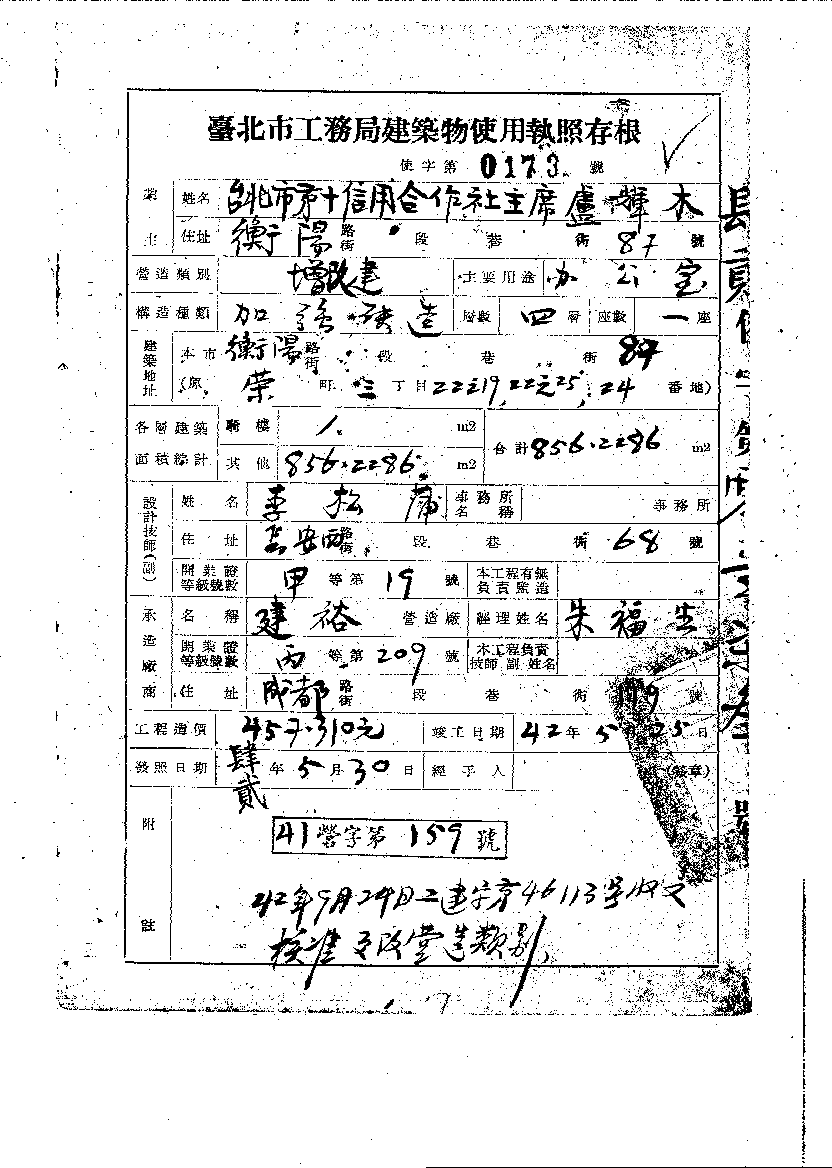 臺北市工務局建築物使用執照存根
使字第 0173 號
業主 姓名 台北市第十信用合作社主席盧輝木
住址 衡陽路街 段 巷 街 87 號
營造類別 增改建 主要用途 办公室
構造種類 加強磚造 層數 四層 座數 一座
建築地址 本市 衡陽路街 段 巷 街 87
(原 榮町 三丁目 22之19, 22之25, 24 番地)
各層建築面積總計 騎樓 m2 合計 856.2286 m2
其他 856.2286 m2
設計技師(副) 姓名 李松 事務所名稱 事務所
住址 長安西路街 段 巷 街 68 號
開業證等級號數 甲等第 19 號 本工程有無負責監造
承造廠商 名稱 建裕 營造廠 經理姓名 朱福生
開業證等級號數 丙等第 209 號 本工程負責技師副姓名
住址 成都路街 段 巷 街 179 號
工程造價 457.310元 竣工日期 42年5月25日
發照日期 肆貳年5月30日 經手人 (簽章)
附註
41營字第 159 號
42年9月24日工建字第46113号收文
核准更改營造類別